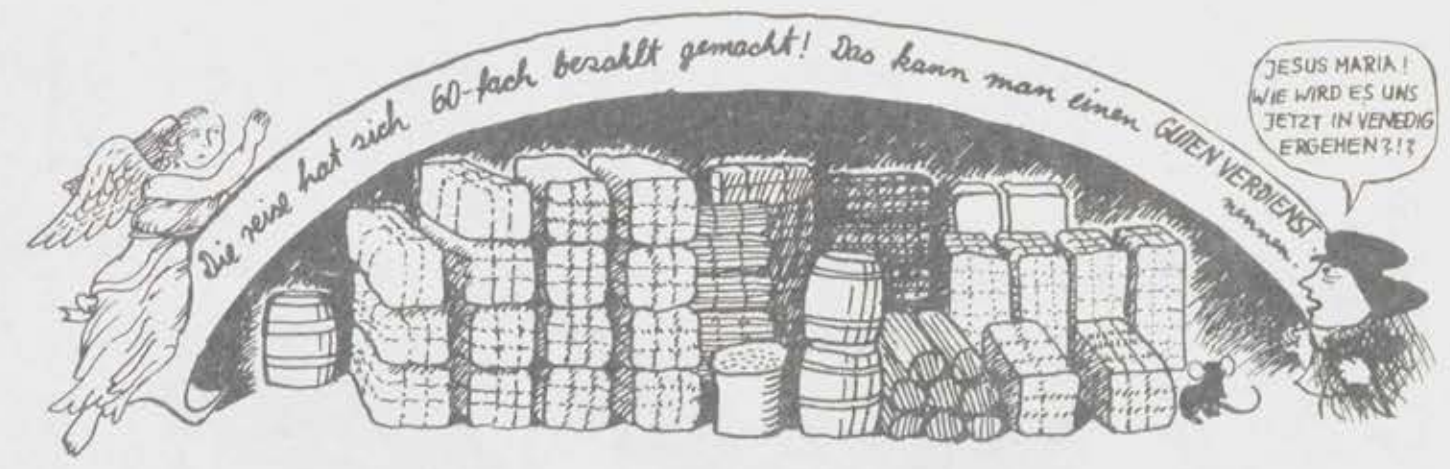 Die reise hat sich 60-fach bezahlt gemacht! Das kann man einen GUTEN VERDIENST
nennen.
JESUS MARIA!
WIE WIRD ES UNS
JETZT IN VENEDIG
ERGEHEN?!?